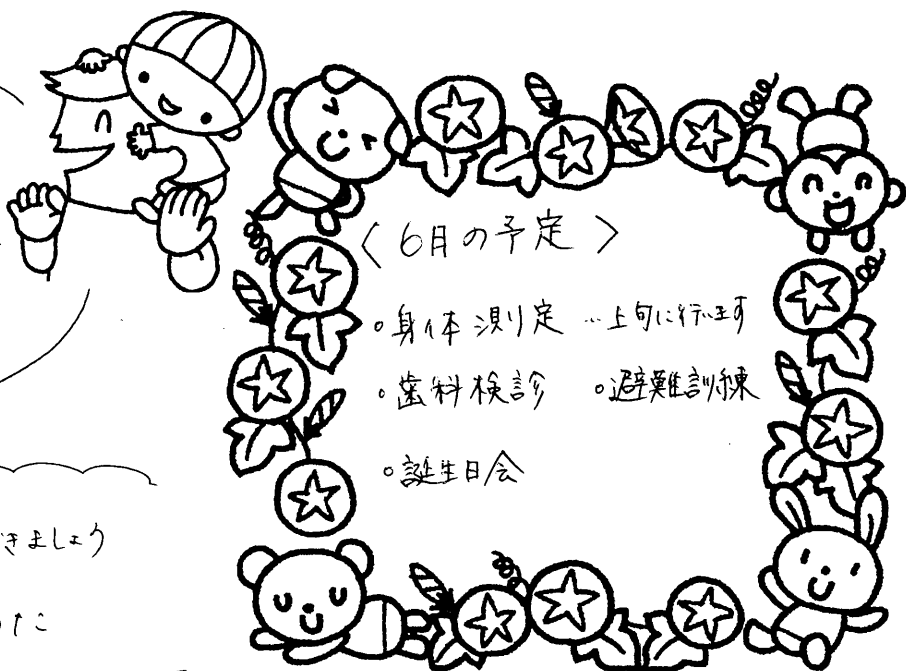 〈6月の予定〉
。身体測定 …上旬に行います
。歯科検診 。避難訓練
。誕生日会
きましょう
うたこ